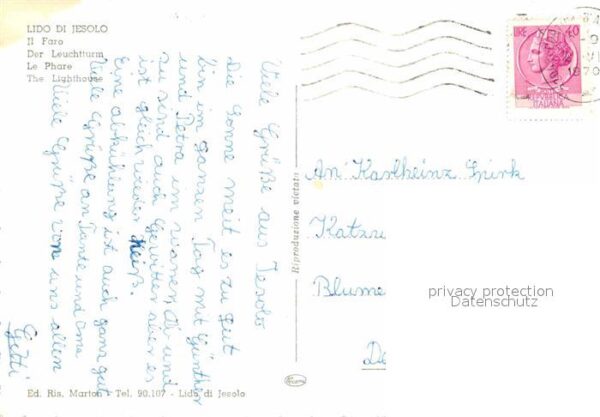 LIDO DI JESOLO
Il Faro
Der Leuchtturm
Le Phare
The Lighthouse
Viele Grüße aus Jesolo
Die Sonne meit es zu gut
bin im ganzen Tag mit Günther
und Petra im wasser Ab und
zu sind auch Gewitter aber es
ist gleich wieder heiß.
Eine abkühlung ist auch ganz gut
Viele Grüße an Tante und Oma
Viele Grüße von uns allen
Gitti
Riproduzione vietata
LIRE 40
REPUBBLICA
ITALIANA
1970
An Karlheinz
Katzw
Blume
privacy protection
Datenschutz
De
Ed. Ris. Marton - Tel. 90.107 - Lido di Jesolo